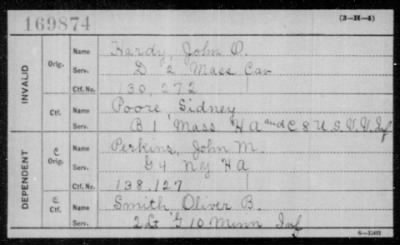 169874
(3-H-4)
INVALID
Orig.
Name Hardy, John O.
Serv. D 2 Mass Cav
Ctf. No. 130,272
Ctf.
Name Poore Sidney
Serv. B 1 Mass H A and C 8 U S V V Inf
DEPENDENT
C Orig.
Name Perkins, John M.
Serv. G 4 NY HA
Ctf. No. 138,127
C Ctf.
Name Smith Oliver B.
Serv. 2 Lt G 10 Minn Inf